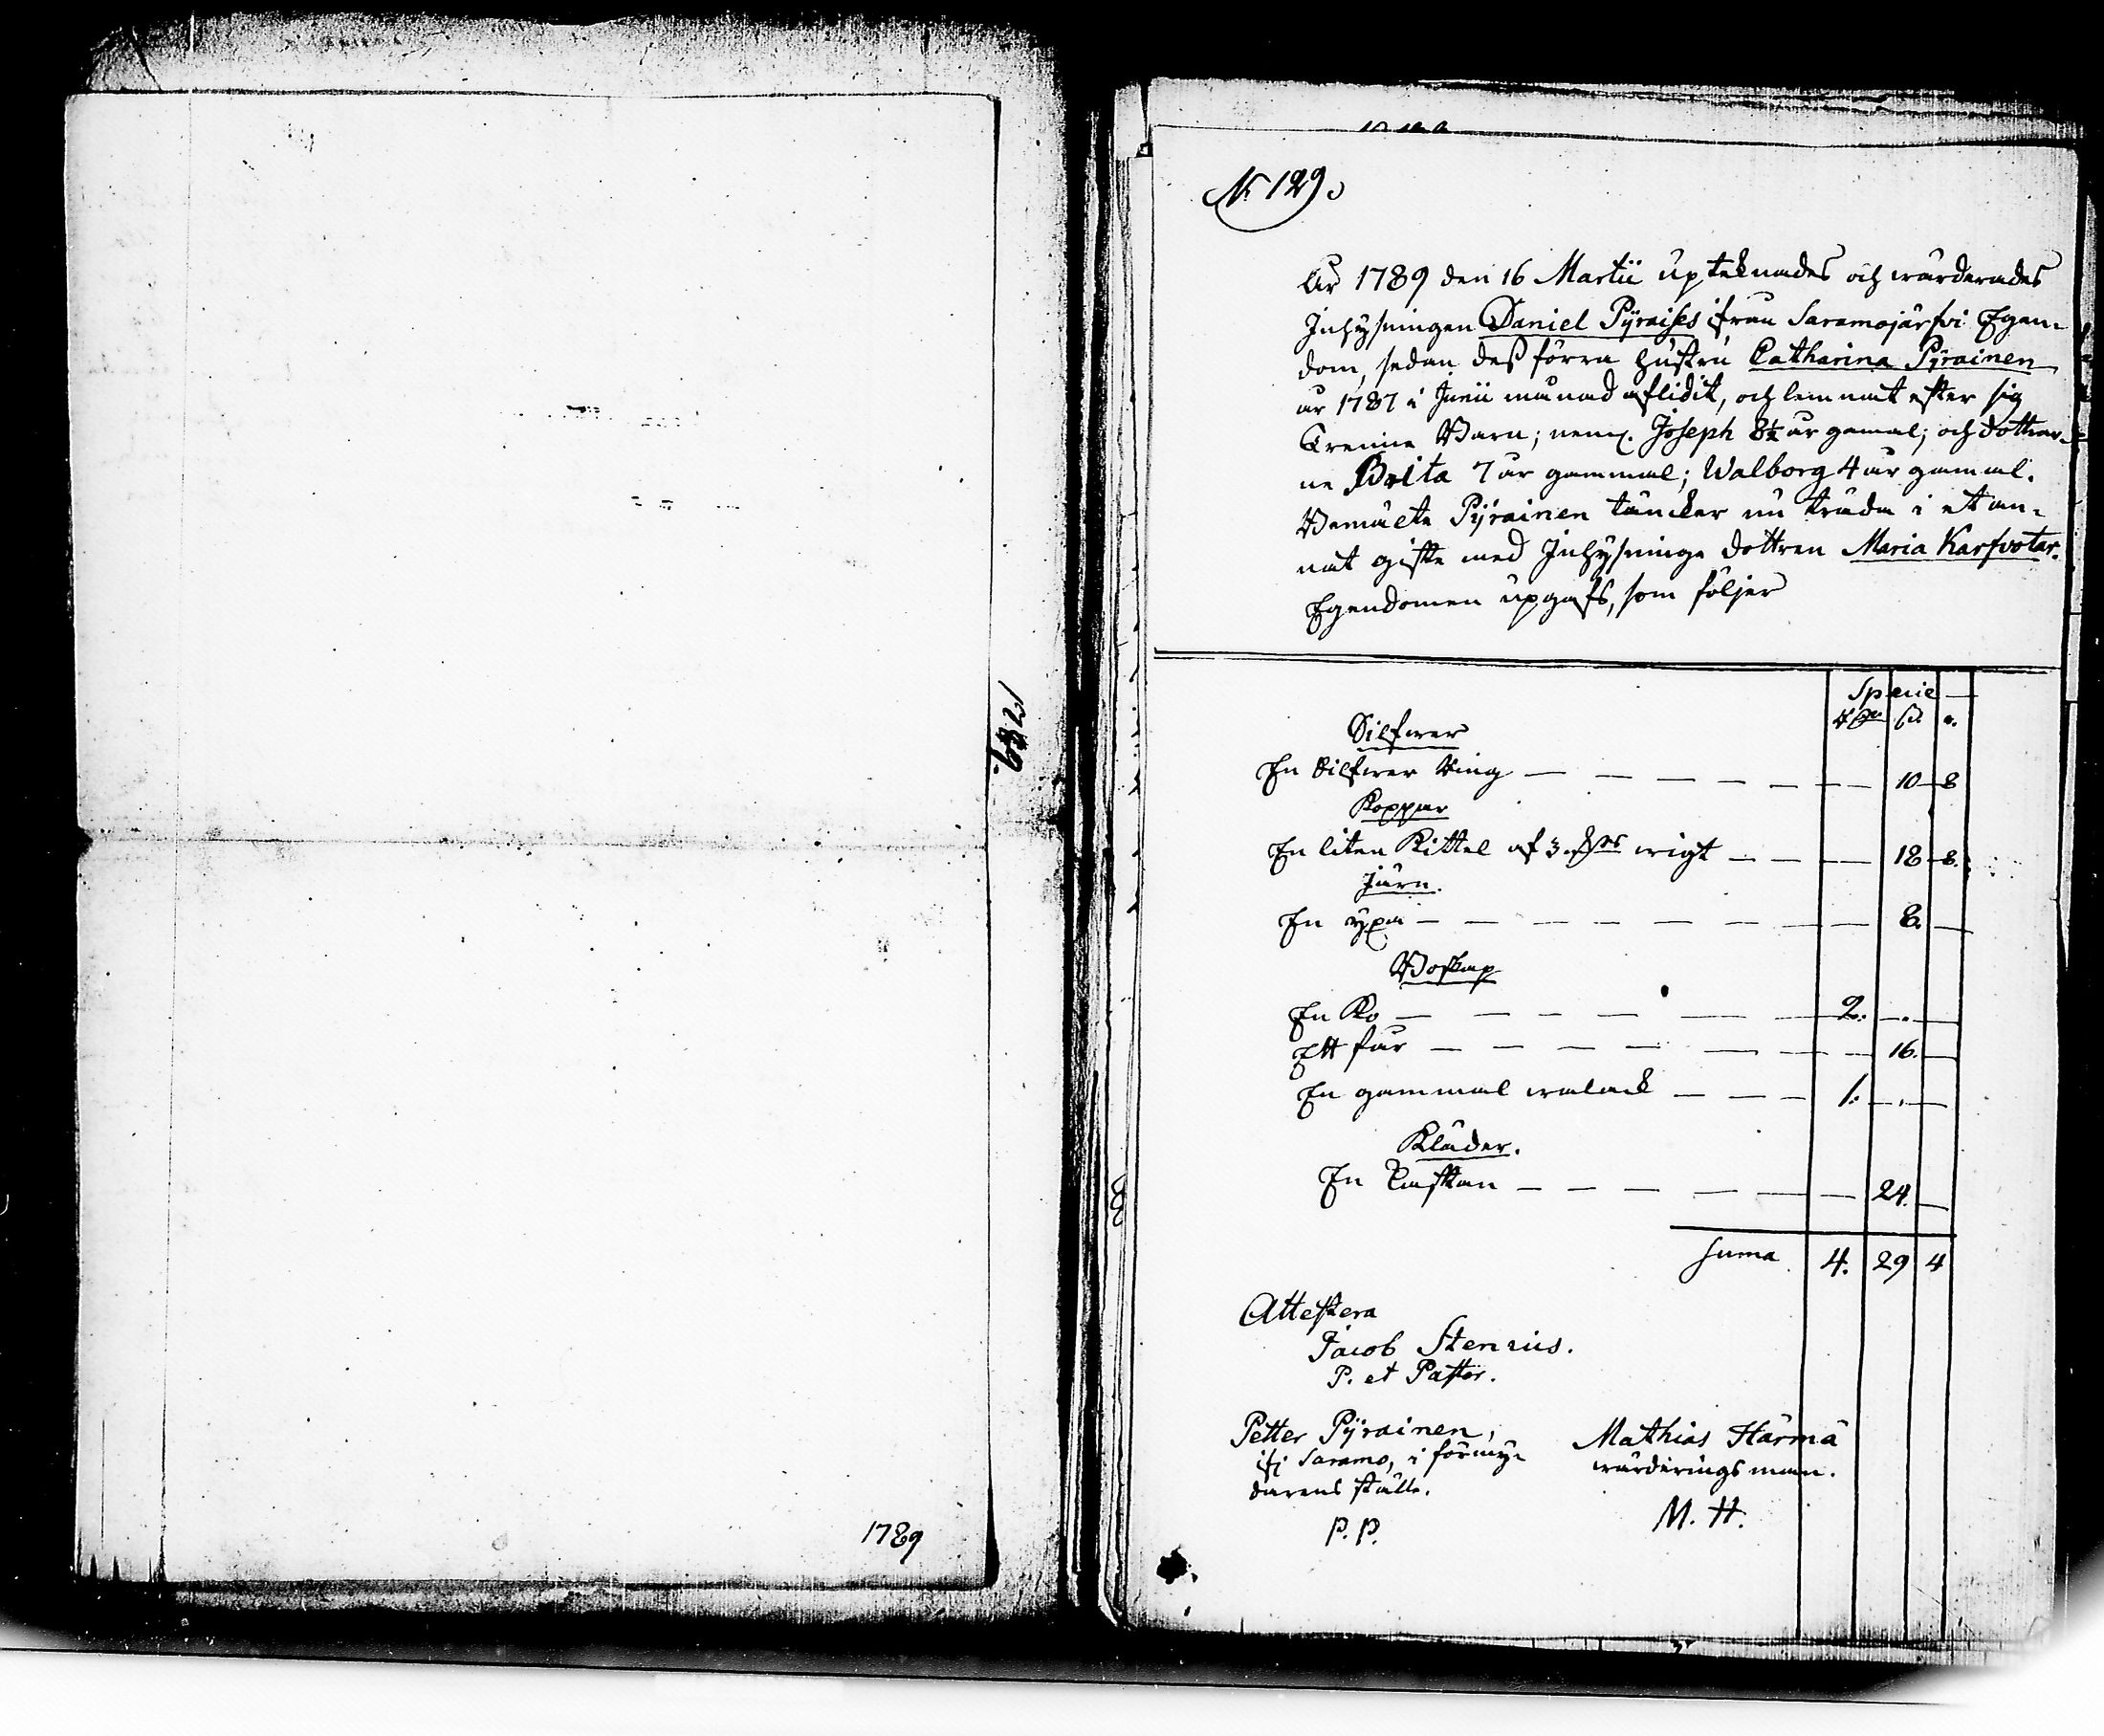 1789
N: 129.
År 1789 den 16 Martii upteknades och wärderades
Inhysningen Daniel Pyraises ifrån Saramojärfvi Egen-
dom, sedan dess förra hustru Catharina Pyrainen
år 1787 i Junii månad aflidit, och lemnat efter sig
Trenne Barn; neml. Joseph 8½ år gamal; och dottrar-
ne Brita 7 år gammal; Walborg 4 år gamal.
Bemälte Pyrainen täncker nu träda i et an-
nat gifte med Inhysninge dottren Maria Karfvotar.
Egendomen upgafs, som följer
Specie
Silfwer
En Silfwer Ring — — — — — 10 8
Koppar
En liten Kittel af 3 wigt — — — 18 8.
Järn.
En yxa — — — — — — 8. —
Boskap
En Ko — — — — — — 2. . —
Ett får — — — — — — 16. —
En gammal walack — — — 1. . —
Kläder.
En Caftan — — — — — 24. —
Suma 4. 29 4
Attestera
Jacob Stenrius.
P. et Pastor.
Petter Pyrainen,
ifr Saramo, i förmyn
darens ställe.
P. P.
Mathias Härmä
wärderingsman.
M. H.